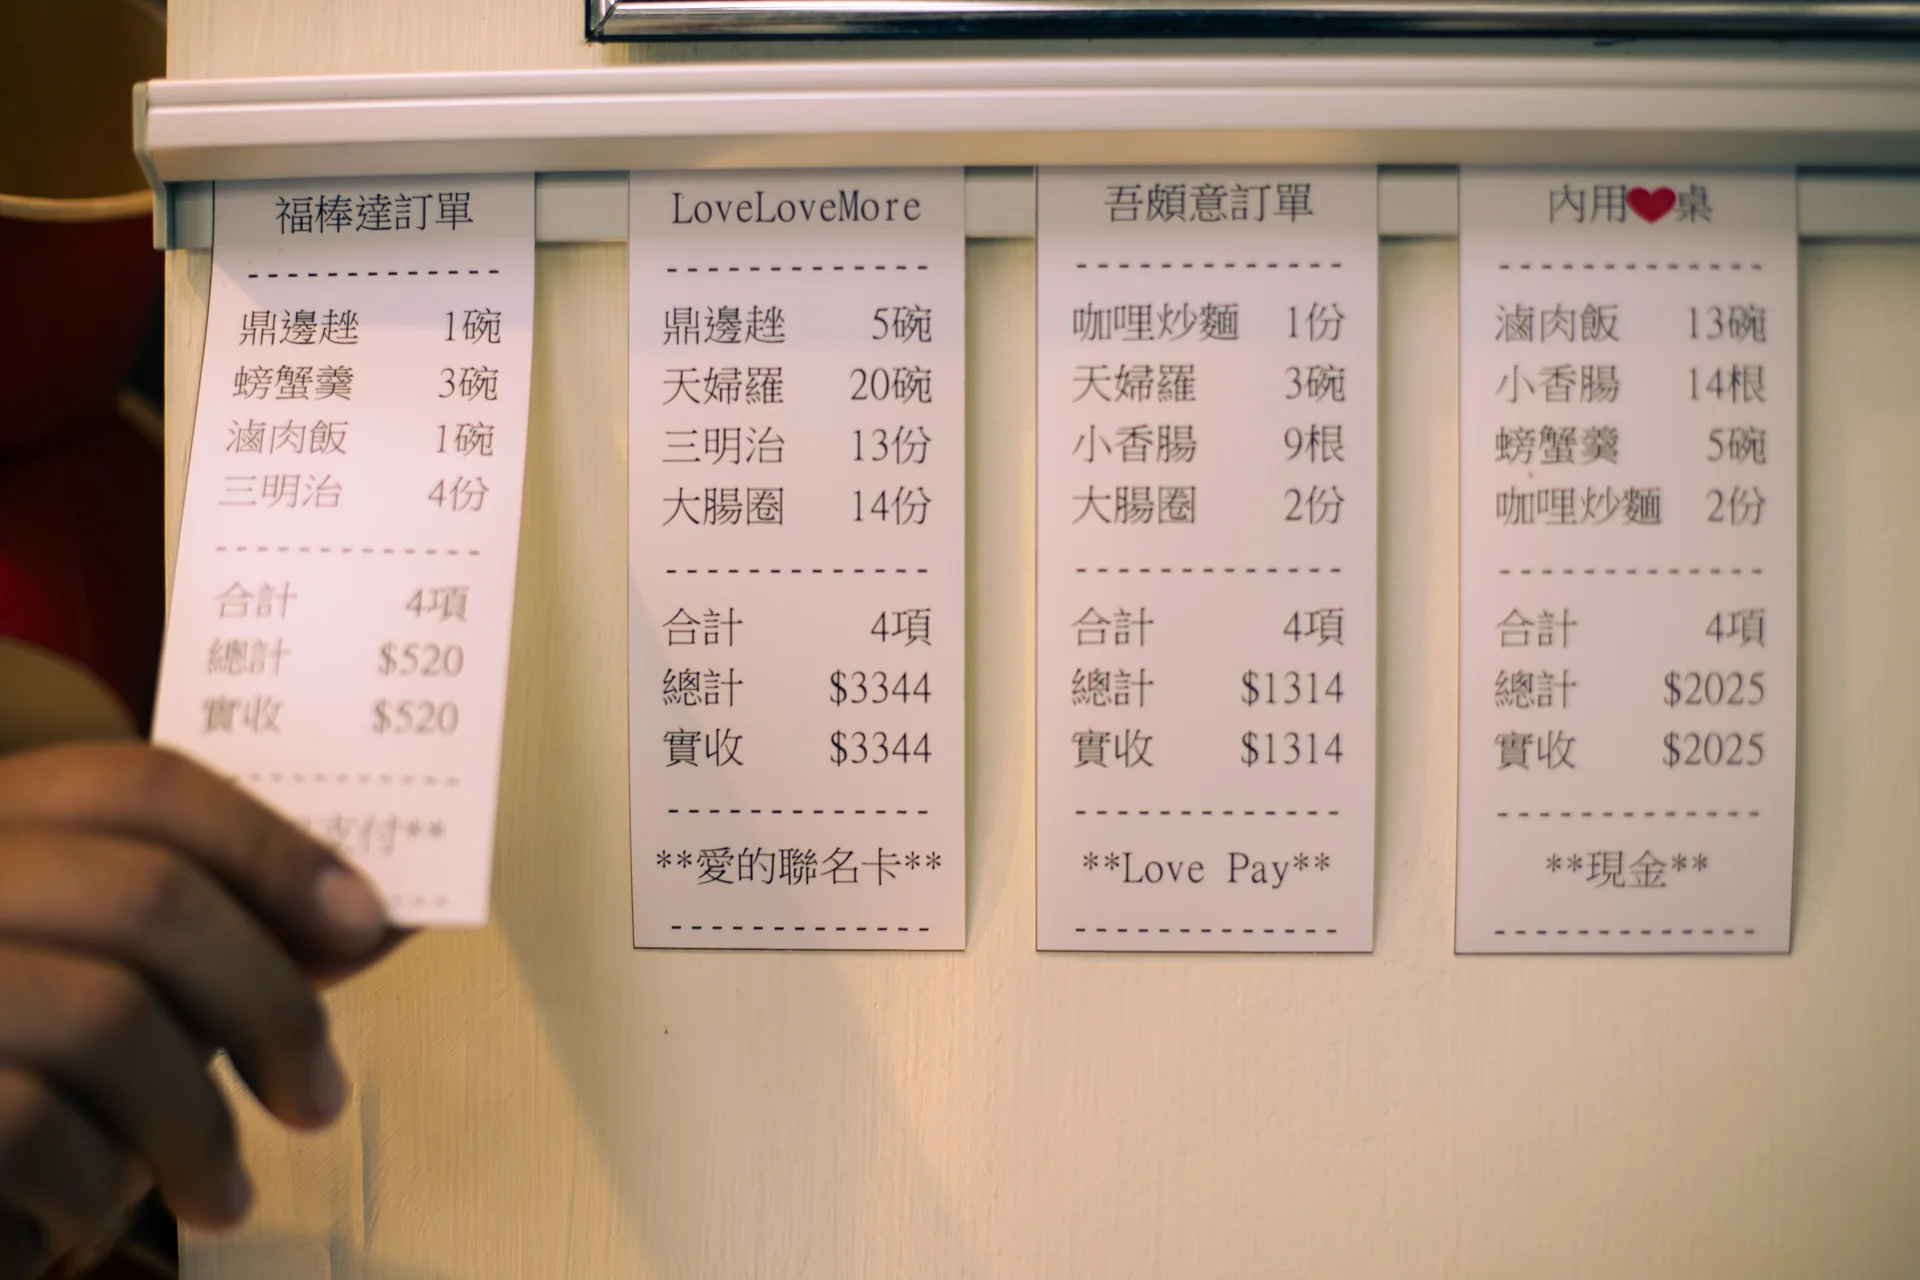 福棒達訂單
-------------
鼎邊趖 1碗
螃蟹羹 3碗
滷肉飯 1碗
三明治 4份
-------------
合計 4項
總計 $520
實收 $520
-------------
支付**
LoveLoveMore
-------------
鼎邊趖 5碗
天婦羅 20碗
三明治 13份
大腸圈 14份
-------------
合計 4項
總計 $3344
實收 $3344
-------------
**愛的聯名卡**
-------------
吾頗意訂單
-------------
咖哩炒麵 1份
天婦羅 3碗
小香腸 9根
大腸圈 2份
-------------
合計 4項
總計 $1314
實收 $1314
-------------
**Love Pay**
-------------
內用❤桌
-------------
滷肉飯 13碗
小香腸 14根
螃蟹羹 5碗
咖哩炒麵 2份
-------------
合計 4項
總計 $2025
實收 $2025
-------------
**現金**
-------------